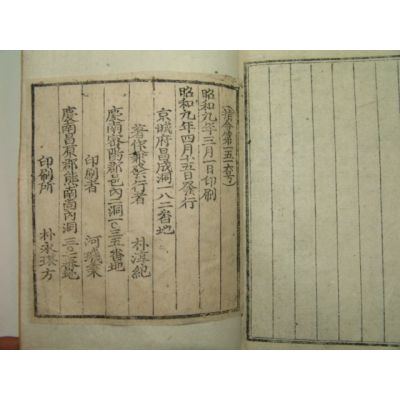 昭和九年三月一日印刷
昭和九年四月十五日發行
京城府昌成洞一八二番地
著作兼發行者 朴淳紀
慶南密陽郡邑內二洞一〇三五番地
印刷者 河
慶南昌原郡熊南面內洞三〇二番地
印刷所 朴永琪方